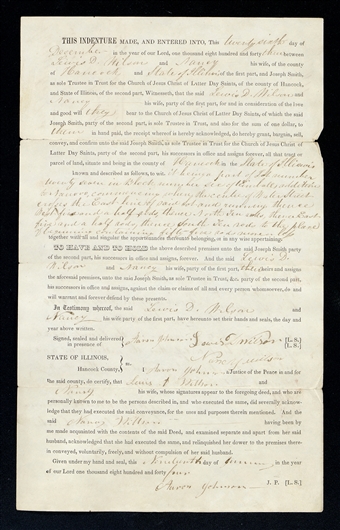 THIS INDENTURE MADE, AND ENTERED INTO, This twenty sixth day of
December in the year of our Lord, one thousand eight hundred and forty between
Lewis D. Wilson and Nancy his wife, of the county
of Hancock and State of Illinois of the first part, and Joseph Smith,
as sole Trustee in Trust for the Church of Jesus Christ of Latter Day Saints, of the county of Hancock,
and State of Illinois, of the second part, Witnesseth, that the said Lewis D. Wilson and
Nancy his wife, party of the first part, for and in consideration of the love
and good will they bear to the Church of Jesus Christ of Latter Day Saints, of which the said
Joseph Smith, party of the second part, is sole Trustee in Trust, and also for the sum of one dollar, to
them in hand paid, the receipt whereof is hereby acknowledged, do hereby grant, bargain, sell,
convey, and confirm unto the said Joseph Smith, as sole Trustee in Trust for the Church of Jesus Christ of
Latter Day Saints, party of the second part, his successors in office and assigns forever, all that tract or
parcel of land, situate and being in the county of Hancock in the State of Illinois
known and described as follows, to wit. It being a part of Lot number
twenty in Block number
in Nauvoo, commencing where the
the East line of said Lot and running thence
and a half rods, thence North ten rods, thence East
and a half rods, thence South ten rods to the place
of
together with all and singular the appurtenances thereunto belonging, or in any wise appertaining:
TO HAVE AND TO HOLD the above described premises unto the said Joseph Smith party
of the second part, his successors in office and assigns, forever. And the said Lewis D.
Wilson and Nancy his wife, party of the first part, their and assigns
the aforesaid premises, unto the said Joseph Smith, as sole Trustee in Trust, &c. party of the second part,
his successors in office and assigns, against the claim or claims of all and every person whomsoever, do and
will warrant and forever defend by these presents.
In Testimony whereof, the said Lewis D. Wilson and
Nancy his wife party of the first part, have hereunto set their hands and seals, the day and
year above written.
Signed, sealed and delivered in presence of Aaron Johnson Lewis D Wilson [L.S.]
Nancy Wilson [L.S.]
STATE OF ILLINOIS,
Hancock County, I, Aaron Johnson Justice of the Peace in and for
the said county, do certify, that Lewis D Wilson and
Nancy his wife, whose signatures appear to the foregoing deed, and who are
personally known to me to be the persons described in, and who executed the same, did severally acknow-
ledge that they had executed the said conveyance, for the uses and purposes therein mentioned. And the
said Nancy Wilson having been by
me made acquainted with the contents of the said Deed, and examined separate and apart from her said
husband, acknowledged that she had executed the same, and relinquished her dower to the premises there-
in conveyed, voluntarily, freely, and without compulsion of her said husband.
Given under my hand and seal, this day of in the year
of our Lord one thousand eight hundred and forty four
Aaron Johnson J. P. [L.S.]